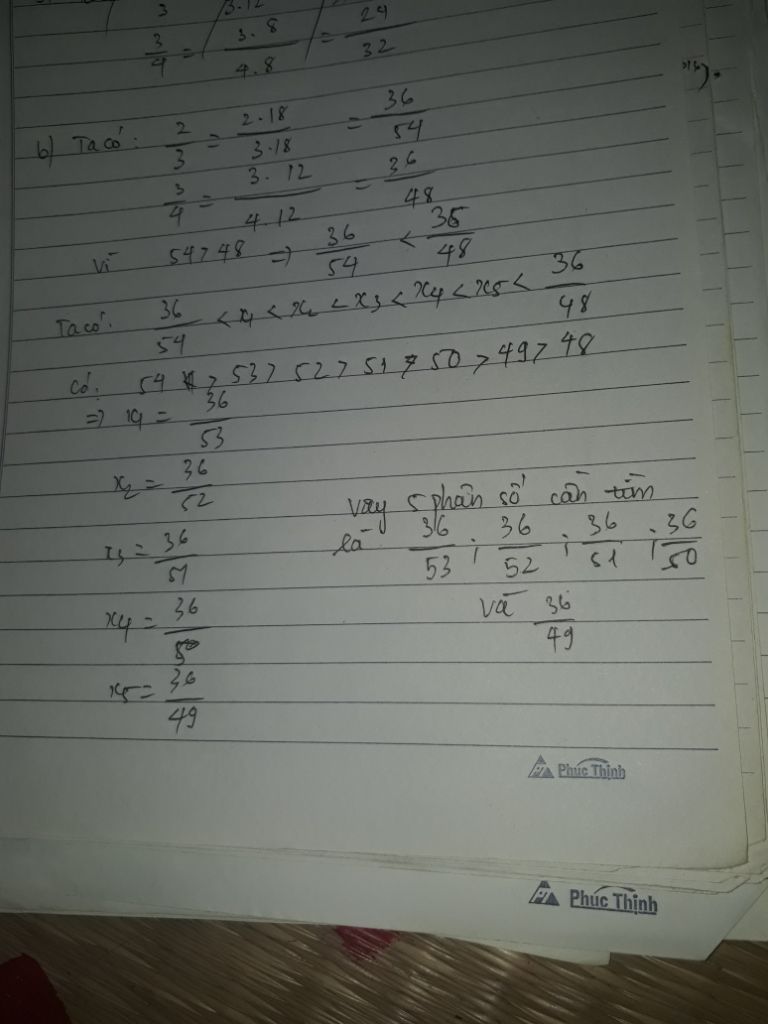 3   3.12
3/4 = 3.8/4.8 = 24/32
b) Ta có: 2/3 = 2.18/3.18 = 36/54
3/4 = 3.12/4.12 = 36/48
Vì 54 > 48 => 36/54 < 36/48
Ta có: 36/54 < x1 < x2 < x3 < x4 < x5 < 36/48
Có: 54 > 53 > 52 > 51 > 50 > 49 > 48
=> x1 = 36/53
x2 = 36/52
x3 = 36/51
x4 = 36/50
x5 = 36/49
Vay 5 phân số cần tìm
là 36/53 ; 36/52 ; 36/51 ; 36/50
và 36/49
Phuc Thịnh
Phúc Thịnh